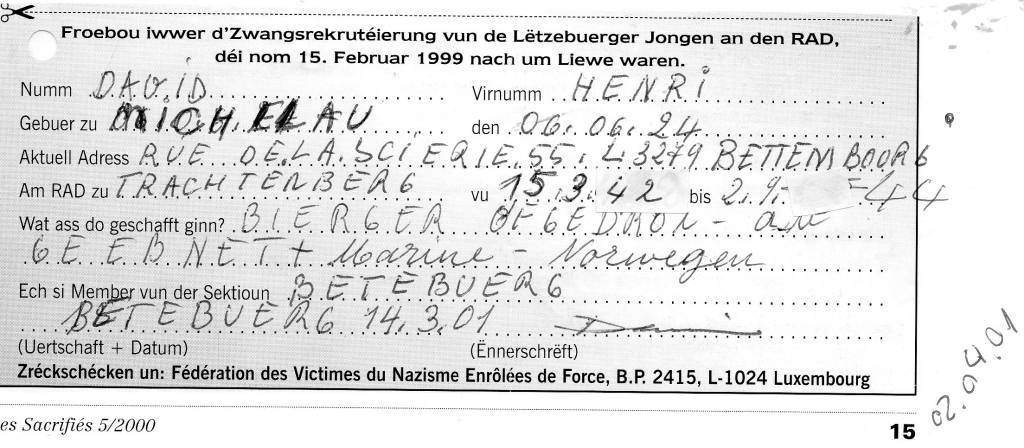 Froebou iwwer d'Zwangsrekrutéierung vun de Lëtzebuerger Jongen an den RAD,
déi nom 15. Februar 1999 nach um Liewe waren.
Numm DAVID Virnumm HENRI
Gebuer zu MICHELAU den 06.06.24
Aktuell Adress RUE DE LA SCIERIE 55. L 3279 BETTEMBOURG
Am RAD zu TRACHTENBERG vu 15.3.42 bis 2.9.-44
Wat ass do geschafft ginn? BIERGER
GEEBNET + Marine - Norwegen
Ech si Member vun der Sektioun BETEBUERG
BETEBUERG 14.3.01
(Uertschaft + Datum) (Ënnerschrëft)
Zréckschécken un: Fédération des Victimes du Nazisme Enrôlées de Force, B.P. 2415, L-1024 Luxembourg
02.04.01
es Sacrifiés 5/2000 15